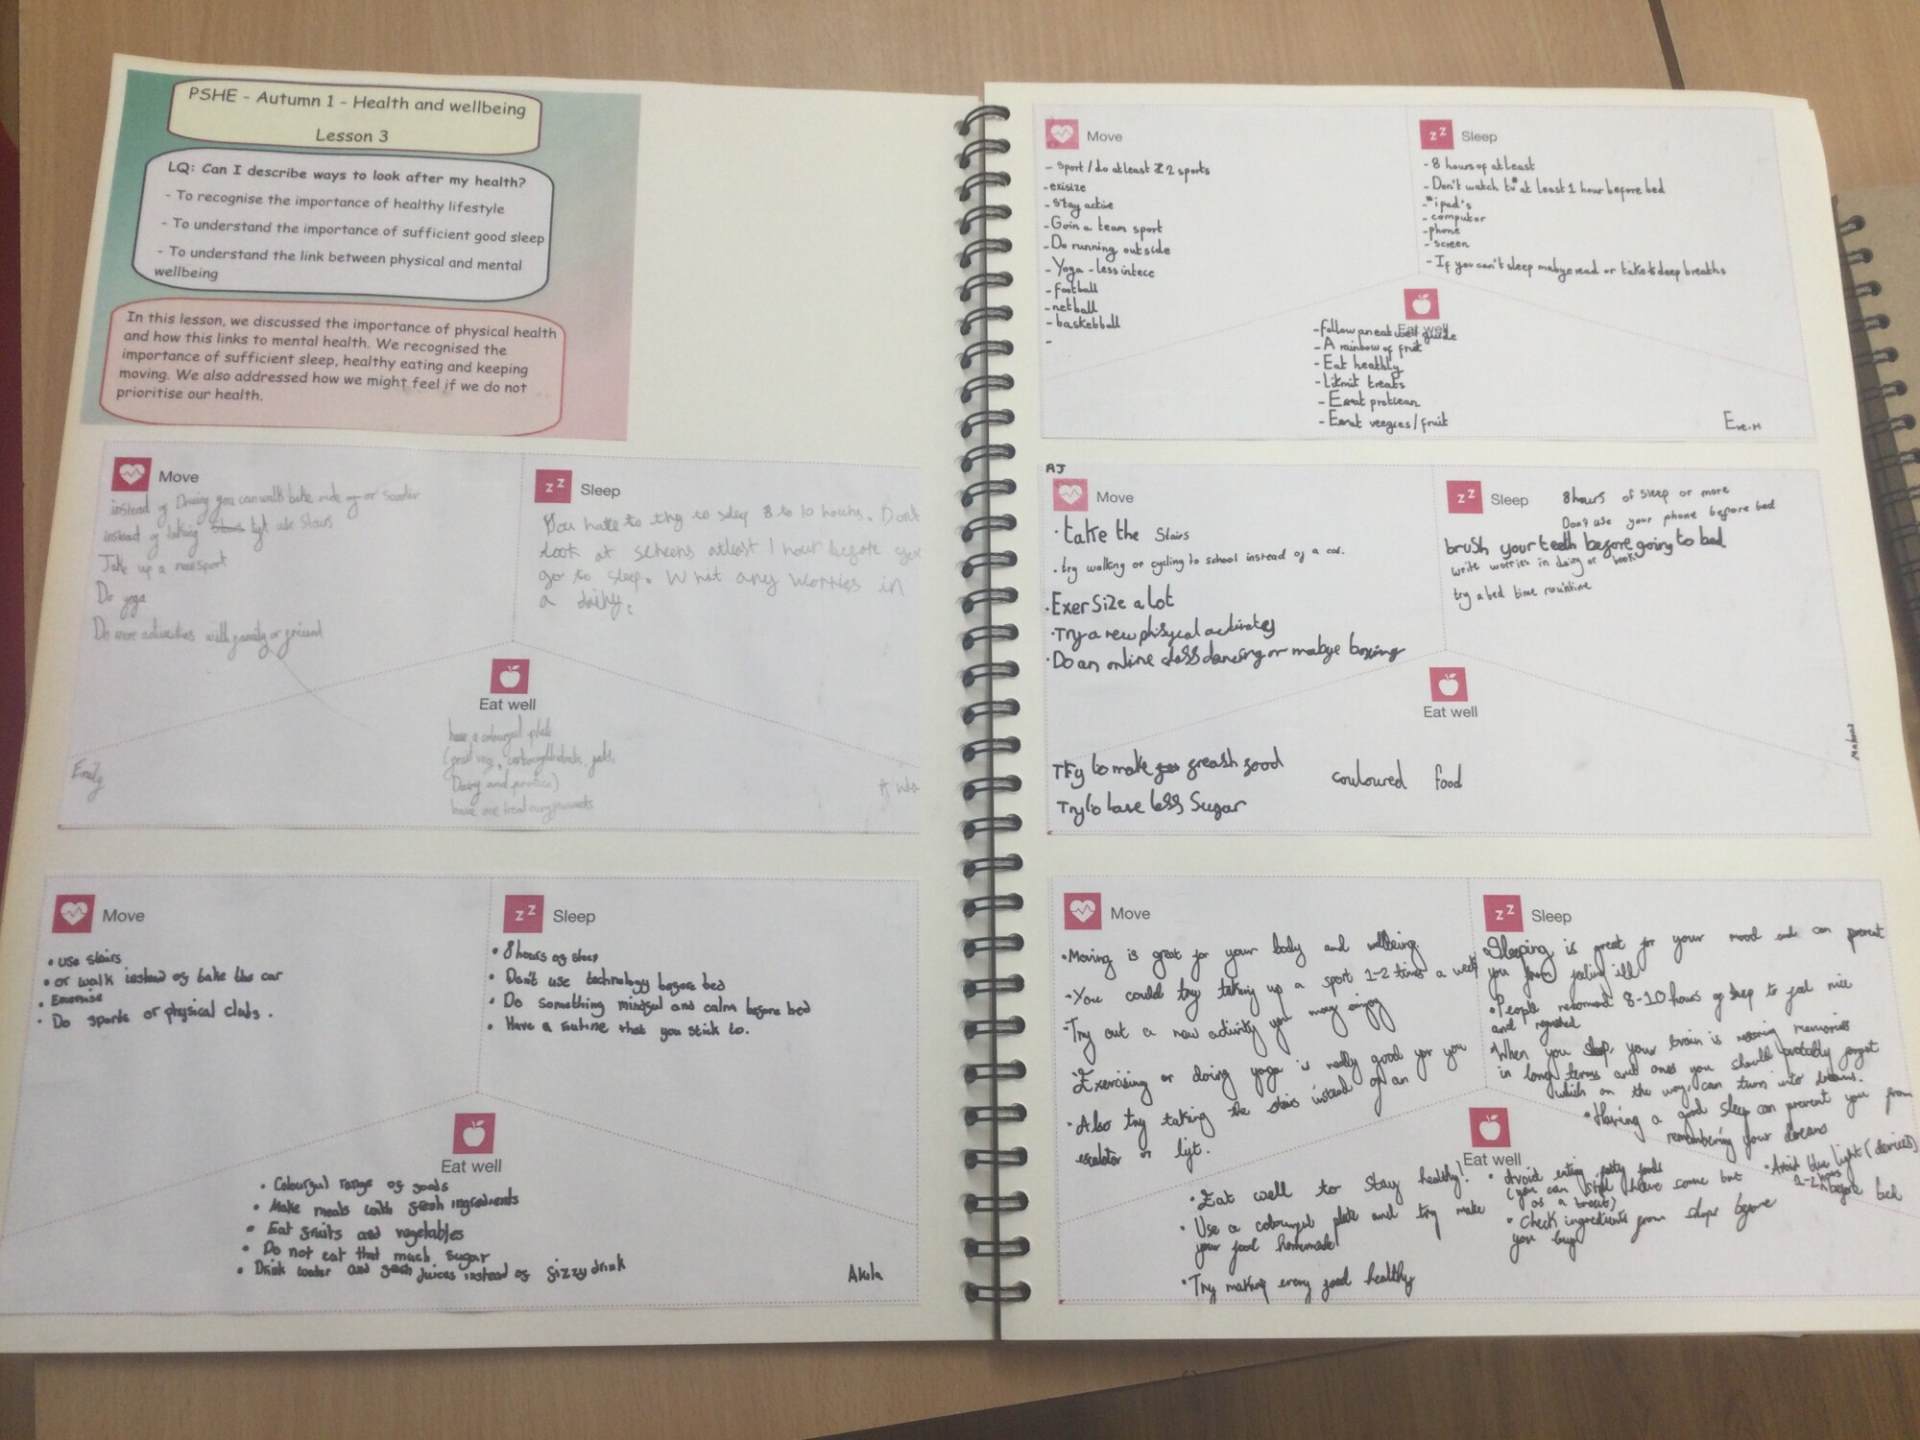 PSHE - Autumn 1 - Health and wellbeing
Lesson 3
LQ: Can I describe ways to look after my health?
- To recognise the importance of healthy lifestyle
- To understand the importance of sufficient good sleep
- To understand the link between physical and mental
wellbeing
In this lesson, we discussed the importance of physical health
and how this links to mental health. We recognised the
importance of sufficient sleep, healthy eating and keeping
moving. We also addressed how we might feel if we do not
prioritise our health.
Move
instead of you can walk bike ride or scooter
instead of taking lift use stairs
Take up a new sport
Do yoga
Do more activities with family or friend
Sleep
You have to try to sleep 8 to 10 hours. Dont
look at screens atleast 1 hour before you
go to sleep. any worries in
a
Eat well
have a colourful plate
Emily
Move
• use stairs
• or walk instead of take the car
• Exercise
• Do sports or physical clubs.
Sleep
• 8 hours of sleep
• Don't use technology before bed
• Do something mindful and calm before bed
• Have a routine that you stick to.
Eat well
• Colourful range of foods
• Make meals with fresh ingredients
• Eat fruits and vegetables
• Do not eat that much sugar
• Drink water and fresh juices instead of fizzy drink
Akila
Move
- Sport / do at least 2 sports
- exisize
- Stay active
- Goin a team sport
- Do running outside
- Yoga - less intece
- football
- netball
- baskebball
-
Sleep
- 8 hours of at least
- Don't watch tv at least 1 hour before bed
- ipad's
- computer
- phone
- screen
- If you can't sleep mabye read or take deep breaths
Eat well
- follow an eat well guide
- A rainbow of fruit
- Eat healthly
- Limit treats
- Eat protiean
- Eat veegies / fruit
Eve.M
AJ
Move
• take the Stairs
• try walking or cycling to school instead of a car.
• ExerSize a lot
• Try a new phisycal activatey
• Do an online class dancing or mabye boxing
Sleep
8 hours of sleep or more
Don't use your phone before bed
brush your teeth before going to bed
write worries in or book
try a bed time
Eat well
Try to make freash food
Try to have less Sugar
couloured food
Move
• Moving is great for your body and wellbeing.
• You could try taking up a sport 1-2 times a week
• Try out a new activity you may enjoy
• Exercising or doing yoga is really good for you
• Also try taking the stairs instead of an
escalator or lift.
Sleep
• Sleeping is great for your mood and can prevent
you from feeling ill
• People recomend 8-10 hours of sleep to feel nice
and
• When you sleep, your brain is memories
in long terms and ones you should probably forget
which on the way, can turn into dreams.
• Having a good sleep can prevent you from
remembering your dreams
• Avoid blue light (devices)
1-2 hours before bed
Eat well
• Eat well to stay healthy!
• Use a colourful plate and try make
your food homemade
• Try making every food healthy
• Avoid eating fatty foods
(you can still have some but
as a treat)
• Check ingredients from shops before
you buy